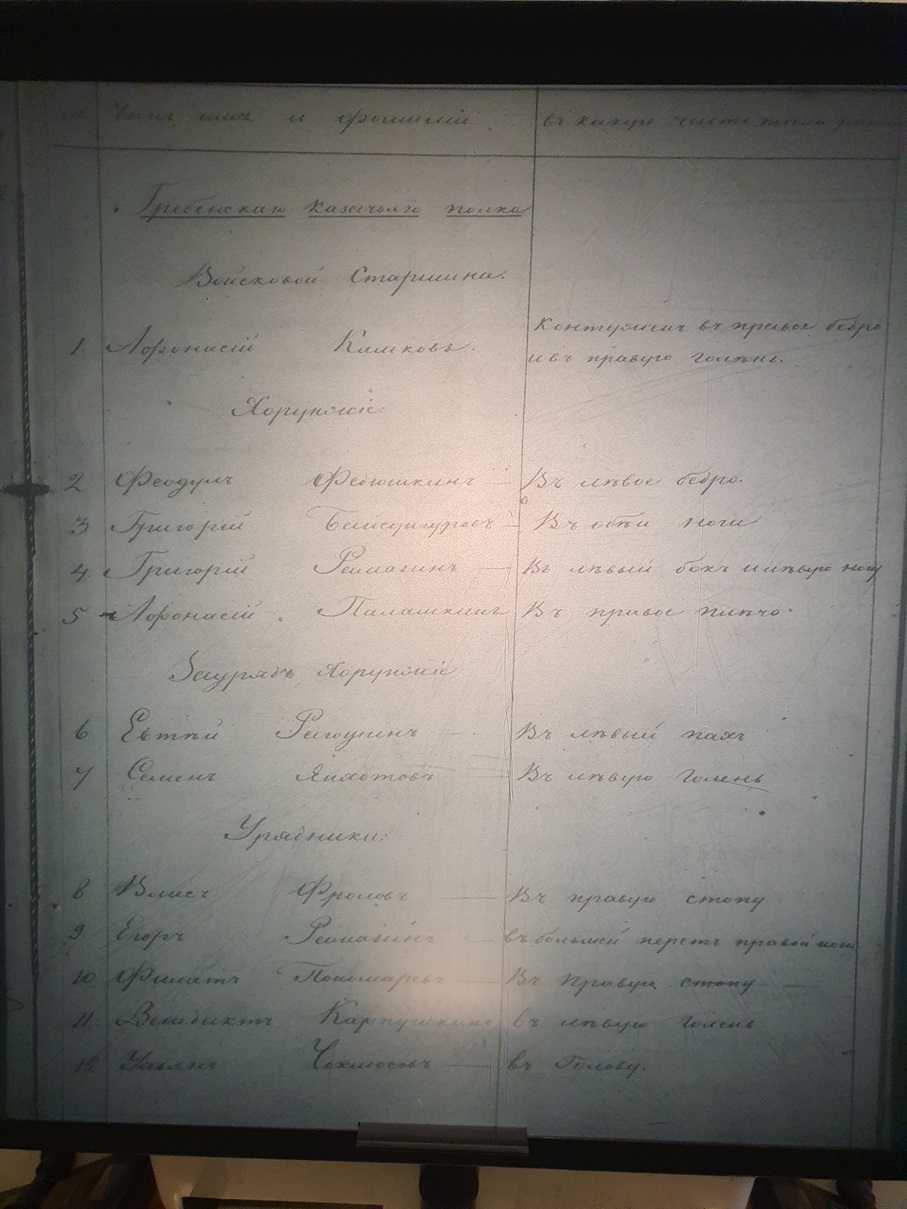 Чинъ, имя и фамилія въ какую часть тѣла раненъ
Гребенскаго казачьяго полка
Войсковой Старшина.
1. Афонасій Камковъ. Контуженъ въ правое бедро
и въ правую голѣнь.
Хорунжіе:
2 Феодулъ Федюшкинъ — Въ лѣвое бедро.
3 Григорій Бейсунгуровъ — Въ обѣи ноги
4. Григорій Ремазинъ — Въ лѣвый бокъ и лѣвую ногу
5 Афонасій Палашкинъ Въ правое плѣчо.
Зауряъ Хорунжіе
6 Евтѣй Рагошинъ — Въ лѣвый пахъ
7 Семенъ Яихотовъ — Въ лѣвую голень
Урядники:
8 Власъ Фроловъ — Въ правую стопу
9 Егоръ Ремазинъ — въ большей перстъ правой ноги
10 Филатъ Пономаревъ — Въ правую стопу —
11 Венедиктъ Карпушкинъ въ лѣвую голень
12 Ульянъ — въ Голову.